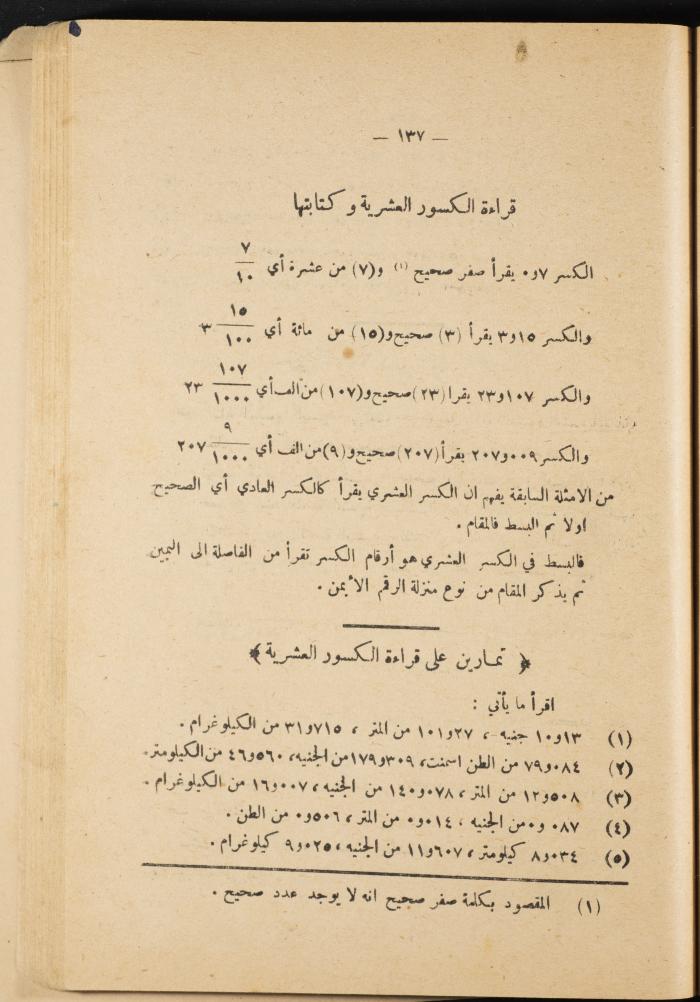 — ١٣٧ —
قراءة الكسور العشرية و كتابتها
الكسر ٧و٠ يقرأ صفر صحيح (١) و(٧) من عشرة أي ٧/١٠
والكسر ١٥و٣ يقرأ (٣) صحيح و(١٥) من مائة أي ١٥/١٠٠ ٣
والكسر ١٠٧و٢٣ يقرا (٢٣) صحيح و(١٠٧) من الف أي ١٠٧/١٠٠٠ ٢٣
والكسر ٠٠٩و٢٠٧ يقرأ (٢٠٧) صحيح و(٩) من الف أي ٩/١٠٠٠ ٢٠٧
من الامثلة السابقة يفهم ان الكسر العشري يقرأ كالكسر العادي أي الصحيح
اولا ثم البسط فالمقام .
فالبسط في الكسر العشري هو أرقام الكسر تقرأ من الفاصلة الى اليمين
ثم يذكر المقام من نوع منزلة الرقم الأيمن .
﴿ تمارين على قراءة الكسور العشرية ﴾
اقرأ ما يأتي :
(١) ١٣و١٠ جنيه ، ٢٧و١٠١ من المتر ، ٧١٥و٣١ من الكيلوغرام .
(٢) ٠٨٤و٧٩ من الطن اسمنت، ٣٠٩و١٧٩ من الجنيه، ٥٦٠و٤٦ من الكيلومتر.
(٣) ٥٠٨و١٢ من المتر ، ٠٧٨و١٤٠ من الجنيه ، ٠٠٧و١٦ من الكيلوغرام .
(٤) ٠٨٧و٠ من الجنيه ، ٠١٤و٠ من المتر ، ٥٠٦و٠ من الطن .
(٥) ٠٣٤و٨ كيلومتر ، ٦٠٧و١١ من الجنيه ، ٠٢٥و٩ كيلوغرام .
(١) المقصود بكلمة صفر صحيح انه لا يوجد عدد صحيح .